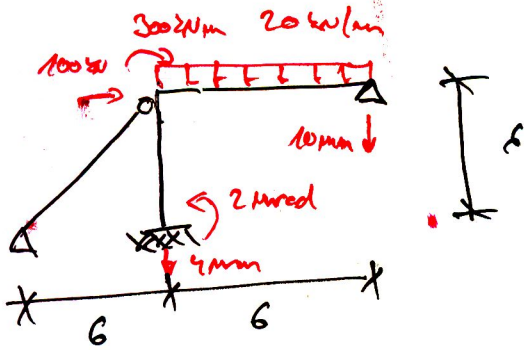 300kNm 20 kN/m
100kN
10mm
6
2 mrad
4mm
6 6